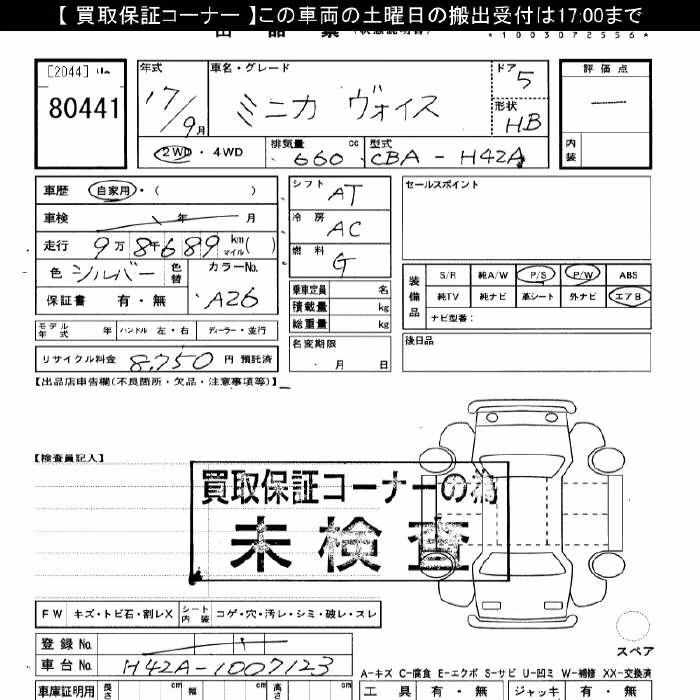 【 買取保証コーナー 】この車両の土曜日の搬出受付は17:00まで
*1003072556*
[2044]
80441
年式 17/9月
車名・グレード
ミニカ ヴォイス
ドア 5
形状 HB
評価点
内装
2WD・4WD
排気量 660 cc
型式 CBA - H42A
車歴 自家用・( )
車検 年 月
走行 9万8千689 km マイル( )
色 シルバー 色替
カラーNo. A26
保証書 有・無
モデル年式 年
ハンドル 左・右
ディーラー・並行
リサイクル料金 8,750 円 預託済
シフト AT
冷房 AC
燃料 G
乗車定員 名
積載量 kg
総重量 kg
名変期限 月 日
セールスポイント
装備品
S/R 純A/W P/S P/W ABS
純TV 純ナビ 革シート 外ナビ エアB
ナビ型番:
後日品
【出品店申告欄(不良箇所・欠品・注意事項等)】
【検査員記入】
買取保証コーナーの為
未検査
FW キズ・トビ石・割レX
シート内装 コゲ・穴・汚レ・シミ・破レ・スレ
スペア
登録 No.
車台 No. H42A-1007123
A-キズ C-腐食 E-エクボ S-サビ U-凹ミ W-補修 XX-交換済
車庫証明用 長さ cm 幅 cm 高さ cm
工具 有・無 ジャッキ 有・無